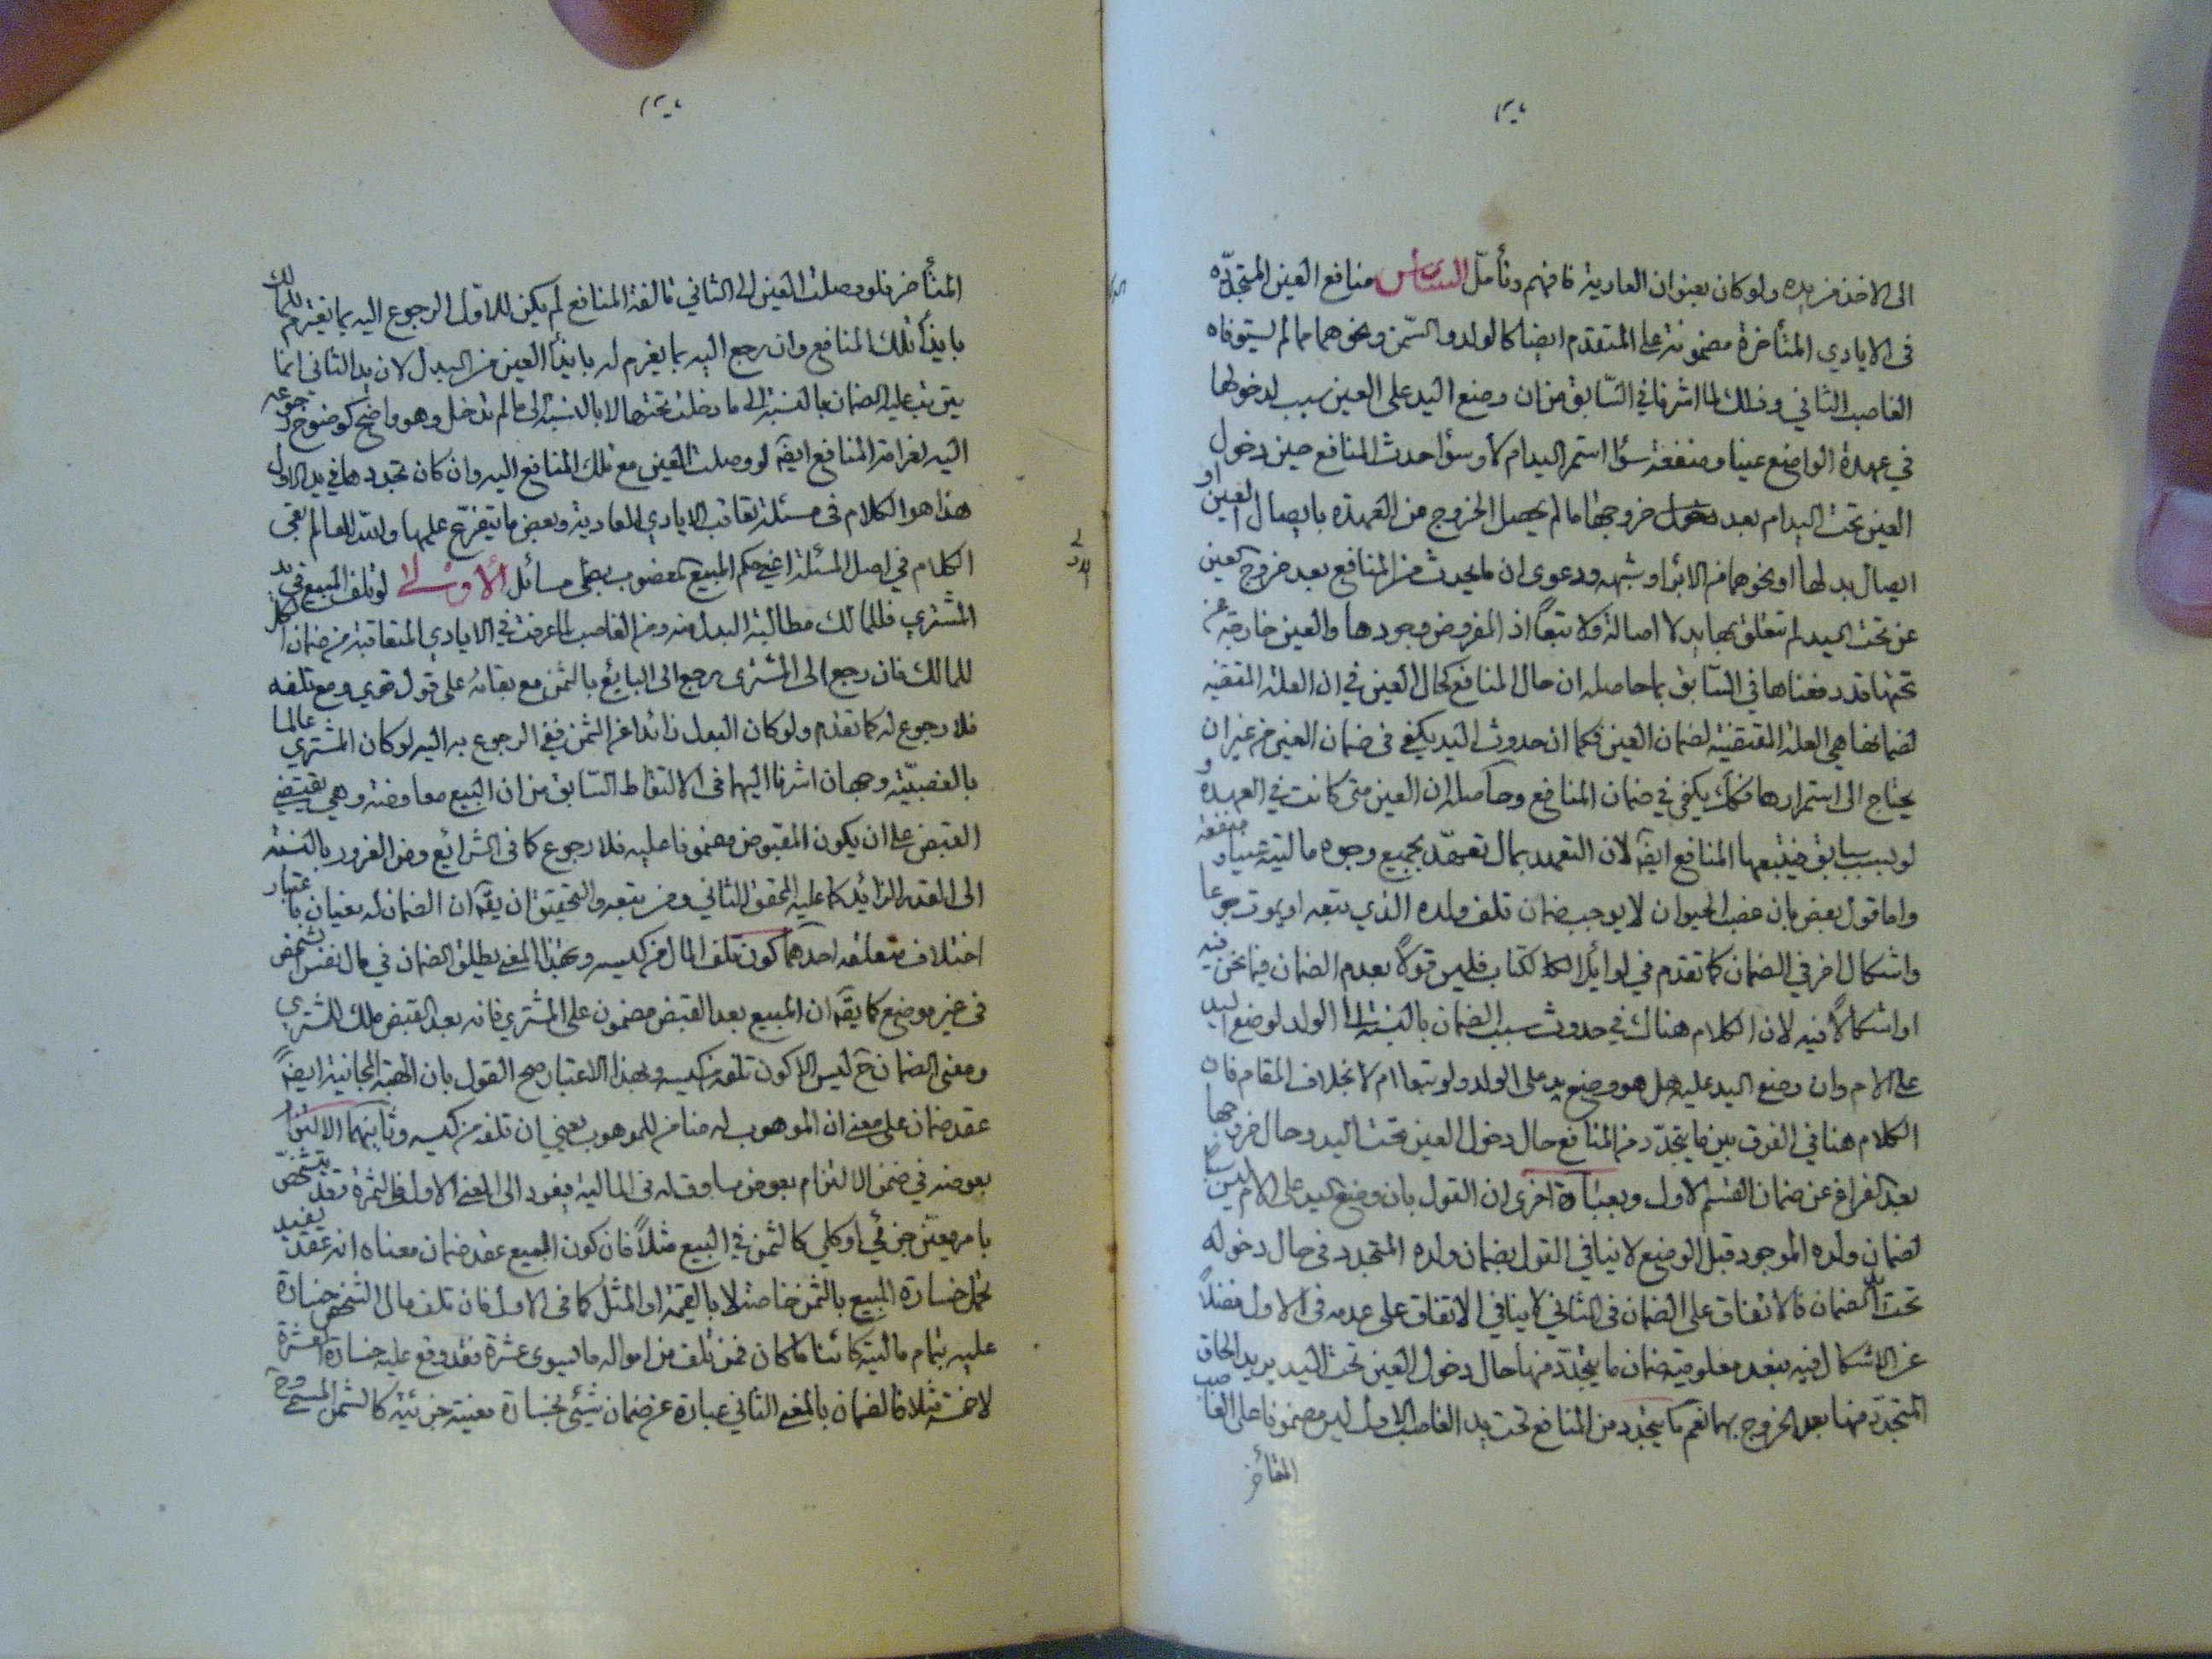 الى الاخذ من يده ولو كان بعنوان العارية فافهم وتأمل السادس منافع العين المتجدّده
فى الايادي المتأخرة مضمونة على المتقدم ايضا كالولد والسّمن ونحوهما مما لم يستوفاه
الغاصب الثاني وذلك لما اشرنا في السّابق من ان وضع اليد على العين سبب لدخولها
في عهدة الواضع عينا ومنفعة سواء استمر اليد ام لا وسواء حدث المنافع حين دخول
العين تحت اليد ام بعد خروجها ما لم يحصل الخروج عن العهدة بايصال العين او
ايصال بدلها او نحوهما من الابراء وشبهه ودعوى ان ما يحدث من المنافع بعد خروج العين
عن تحت اليد لم تتعلق بها يد لا اصالة ولا تبعاً اذ المفروض وجودها والعين خارجة عن
تحتها قد دفعناها في السّابق بما حاصله ان حال المنافع كحال العين في ان العلة المقتضية
لضمانها هي العلة المقتضية لضمان العين فكما ان حدوث اليد يكفى فى ضمان العين من غير ان
يحتاج الى استمرارها فكك يكفي في ضمان المنافع وحاصله ان العين متى كانت في العهدة و
لو بسبب سابق فيتبعها المنافع ايضً لان التعهد بمال تعهّد بجميع وجوه مالية عينا و منفعة
واما قول بعض بان غصب الحيوان لا يوجب ضمان تلف ولده الذي يتبعه او يموت جوعا
واشكال اخر في الضمان كما تقدم في اوايل الكتاب فليس قولاً بعدم الضمان فيما نحن فيه
او اشكالاً فيه لان الكلام هناك في حدوث سبب الضمان بالنسبة الى الولد لوضع اليد
على الام وان وضع اليد عليه هل هو وضع يد على الولد ولو تبعا ام لا بخلاف المقام فان
الكلام هنا في الفرق بين ما يتجدّد من المنافع حال دخول العين تحت اليد وحال خروجها
بعد الفراغ عن ضمان القسم الاول وبعبارة اخرى ان القول بان وضع اليد على الام ليس سببا
لضمان ولده الموجود قبل الوضع لا ينافي القول بضمان ولده المتجدد فى حال دخوله
تحت اليد الضمان فالاتفاق على الضمان فى الثاني لا ينافي الاتفاق على عدمه فى الاول فضلاً
عن الاشكال فيه فبعد معلومية ضمان ما يتجدّد منها حال دخول العين تحت اليد يريد الحاق
المتجدّد منها بعد الخروج بها نعم ما يتجدد من المنافع تحت يد الغاصب الاول ليس مضمونا على الغاصب
المتأخر
المتأخر فلو وصلت العين الى الثاني فالفة المنافع لم يكن للاوّل الرجوع اليه بما يغترم للمالك
بايذاء تلك المنافع وان رجع اليه بما يغرم له بايذاء العين من البدل لان يد الثانى انما
يترتب عليه الضمان بالنسبة الى ما دخلت تحتها لا بالنسبة الى ما لم تدخل وهو واضح كوضوح رجوعه
اليه لغرامة المنافع ايضً لو وصلت العين مع تلك المنافع اليه وان كان تجددها في يد الاول
هذا هو الكلام فى مسئلة تعاقب الايادي العادية وبعض ما يتفرّع عليها والله العالم بقى
الكلام في اصل المسئلة اعني حكم المبيع المغصوب مسائل الأولى لو تلف المبيع في يد
المشتري فللمالك مطالبة البدل منه ومن الغاصب لما عرفت في الايادي المتعاقبة من ضمان الكل
للمالك فان رجع الى المشترى رجع الى البايع بالثمن مع بقائه على قول قوي ومع تلفه
فلا رجوع له كما تقدم ولو كان البدل زائدا عن الثمن ففي الرجوع به اليه لو كان المشتري عالما
بالغصبيّة وجهان اشرنا اليهما فى الالتقاط السّابق من ان البيع معاوضة وهي تقتضي
القبض على ان يكون المقبوض مضمونا عليه فلا رجوع كما فى الشرائع ومن الغرور بالنسبة
الى القدر الزائد كما عليه المحقق الثاني ومن تبعه والتحقيق ان يقً ان الضمان له معنيان باعتبار
اختلاف متعلقه احدهما كون تلف المال من كيسه وبهذا المعنى يطلق الضمان في مال نفس الشخص
فى غير موضع كما يقً ان المبيع بعد القبض مضمون على المشتري فانه بعد القبض ملك للمشتري
ومعنى الضمان ح ليس الا كون تلفه من كيسه وبهذا الاعتبار صح القول بان الهبة المجانية ايضً
عقد ضمان على معنى ان الموهوب له ضامن للموهوب يعني ان تلفه من كيسه وثانيهما الالتزام
بعوضه في ضمن الالتزام بعوض مساو له فى المالية يعود الى المعنى الاول فى الثمرة وقد يتشخّص
بامر معيّن جزئي او كلي كالثمن في البيع مثلاً فان كون البيع عقد ضمان معناه انه عقد يفيد
تحمل خسارة المبيع بالثمن خاصة لا بالقيمة او المثل كما فى الاول فان تلف مال الشخص خسارة
عليه بتمام مالية كائنا ما كان فمن تلف من امواله ما يسوى عشرة فقد وقع عليه خسارة العشرة
لا خمسة مثلا فالضمان بالمعنى الثاني عبارة عن ضمان شيئى بخسارة معينة جزئية كالثمن المسمى